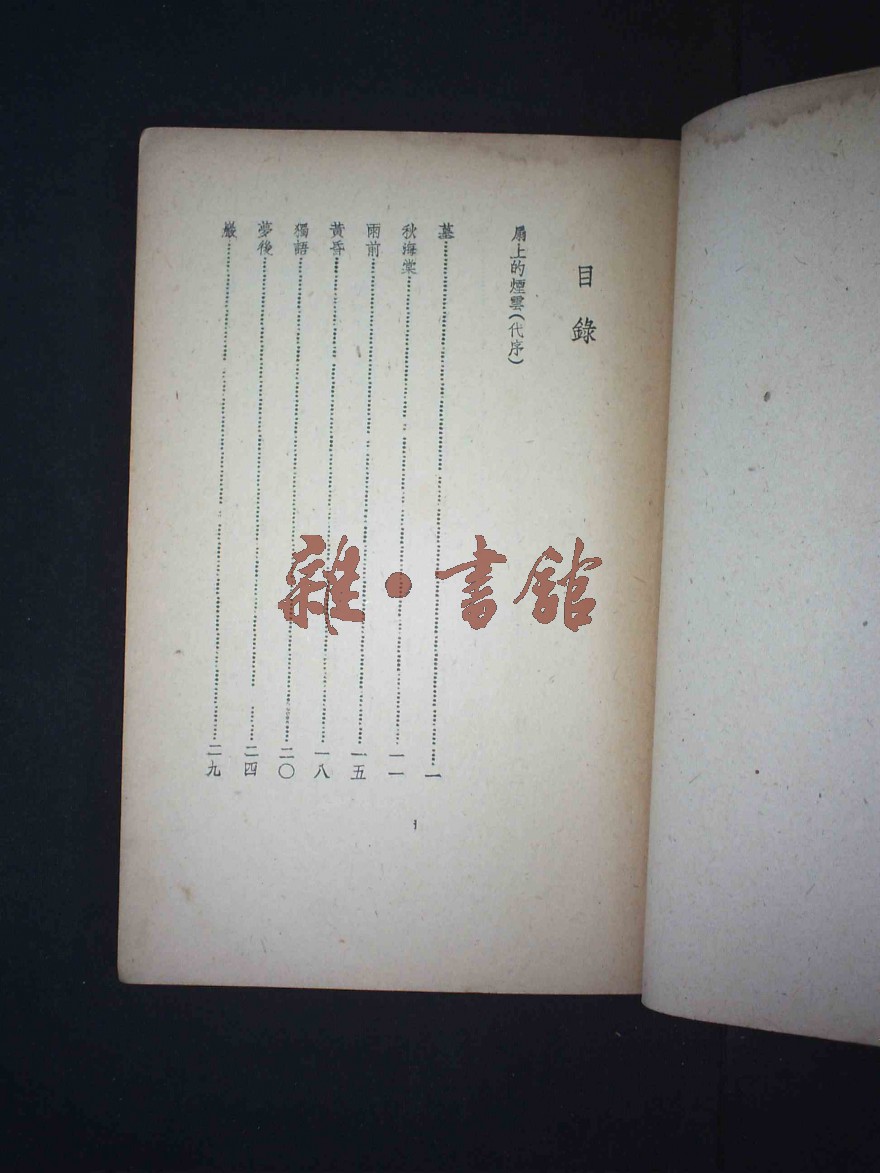 目錄
扇上的煙雲(代序)
墓……一
秋海棠……一一
雨前……一五
黃昏……一八
獨語……二〇
夢後……二四
巖……二九
1
雜·書館